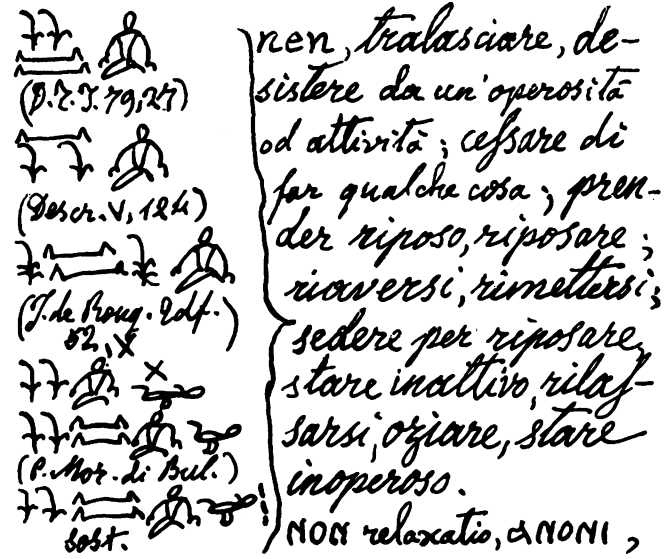 (D. Z. J. 79, 27)
(Descr. V, 124)
(J. de Roug. Edf.
52, X
(P. Mor. di Bul.)
sost.
nen, tralasciare, de-
sistere da un' operosità
od attività; cessare di
far qualche cosa; pren-
der riposo, riposare;
riaversi, rimettersi;
sedere per riposare,
stare inattivo, rilas-
sarsi, oziare, stare
inoperoso.
NON relaxatio, ⲁNONI,